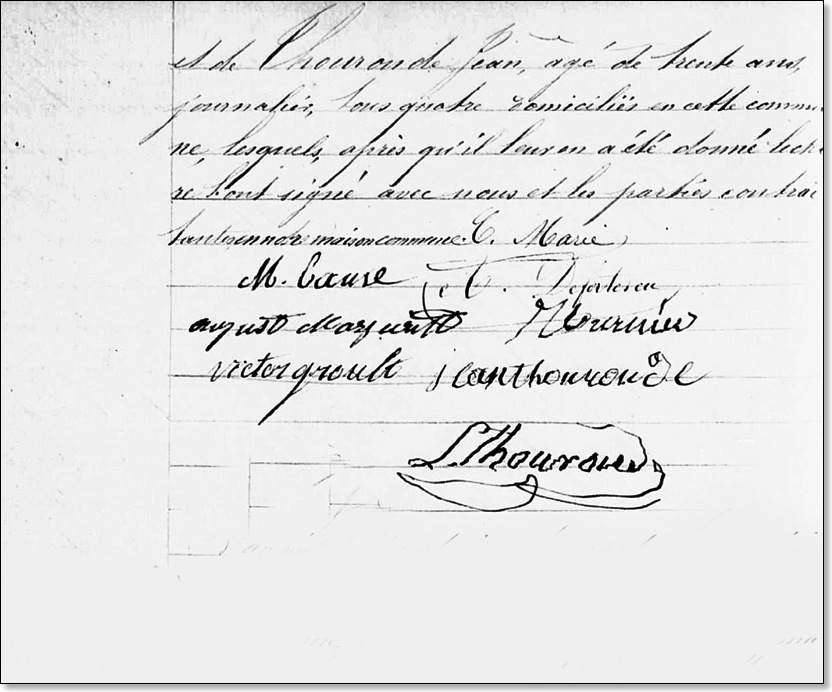 et de Thouronde Jean, agé de trente ans,
journalier, tous quatre domiciliés en cette commu
ne, lesquels, après qu'il leur en a été donné lectu
re l'ont signé avec nous et les parties contrac
tantes en notre maison commune. E. Marie
M. Cause E.
august Margueritte Meurnier
victor groult jean thouronde
L. Thouronde